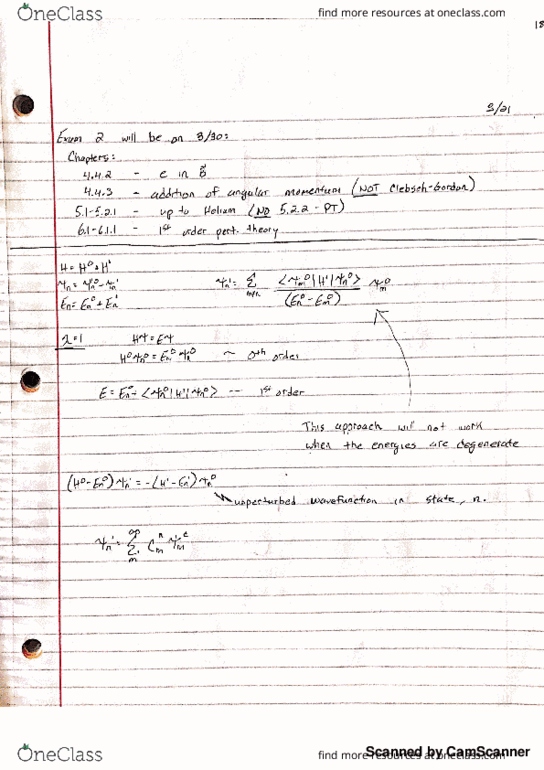 OneClass
find more resources at oneclass.com
18
3/21
Exam 2 will be on 3/30:
Chapters:
4.4.2 - e in B⃗
4.4.3 - addition of angular momentum (NOT Clebsch-Gordon)
5.1-5.2.1 - up to Helium (NO 5.2.2 - PT)
6.1-6.1.1 - 1st order pert. theory
H = H⁰ + H'
ψn = ψn⁰ - ψn'
En = En⁰ + En'
ψn' = Σ m≠n <ψm⁰|H'|ψn⁰> / (En⁰ - Em⁰) ψm⁰
λ=1
Hψ = Eψ
H⁰ψn⁰ = En⁰ψn⁰ ~ 0th order
E = En⁰ + <ψn⁰|H'|ψn⁰> -- 1st order
This approach will not work
when the energies are degenerate
(H⁰ - En⁰)ψn' = -(H' - En')ψn⁰
unperturbed wavefunction in state, n.
ψn' = Σ m ∞ Cm n ψm⁰
Scanned by CamScanner
OneClass
find more resources at oneclass.com